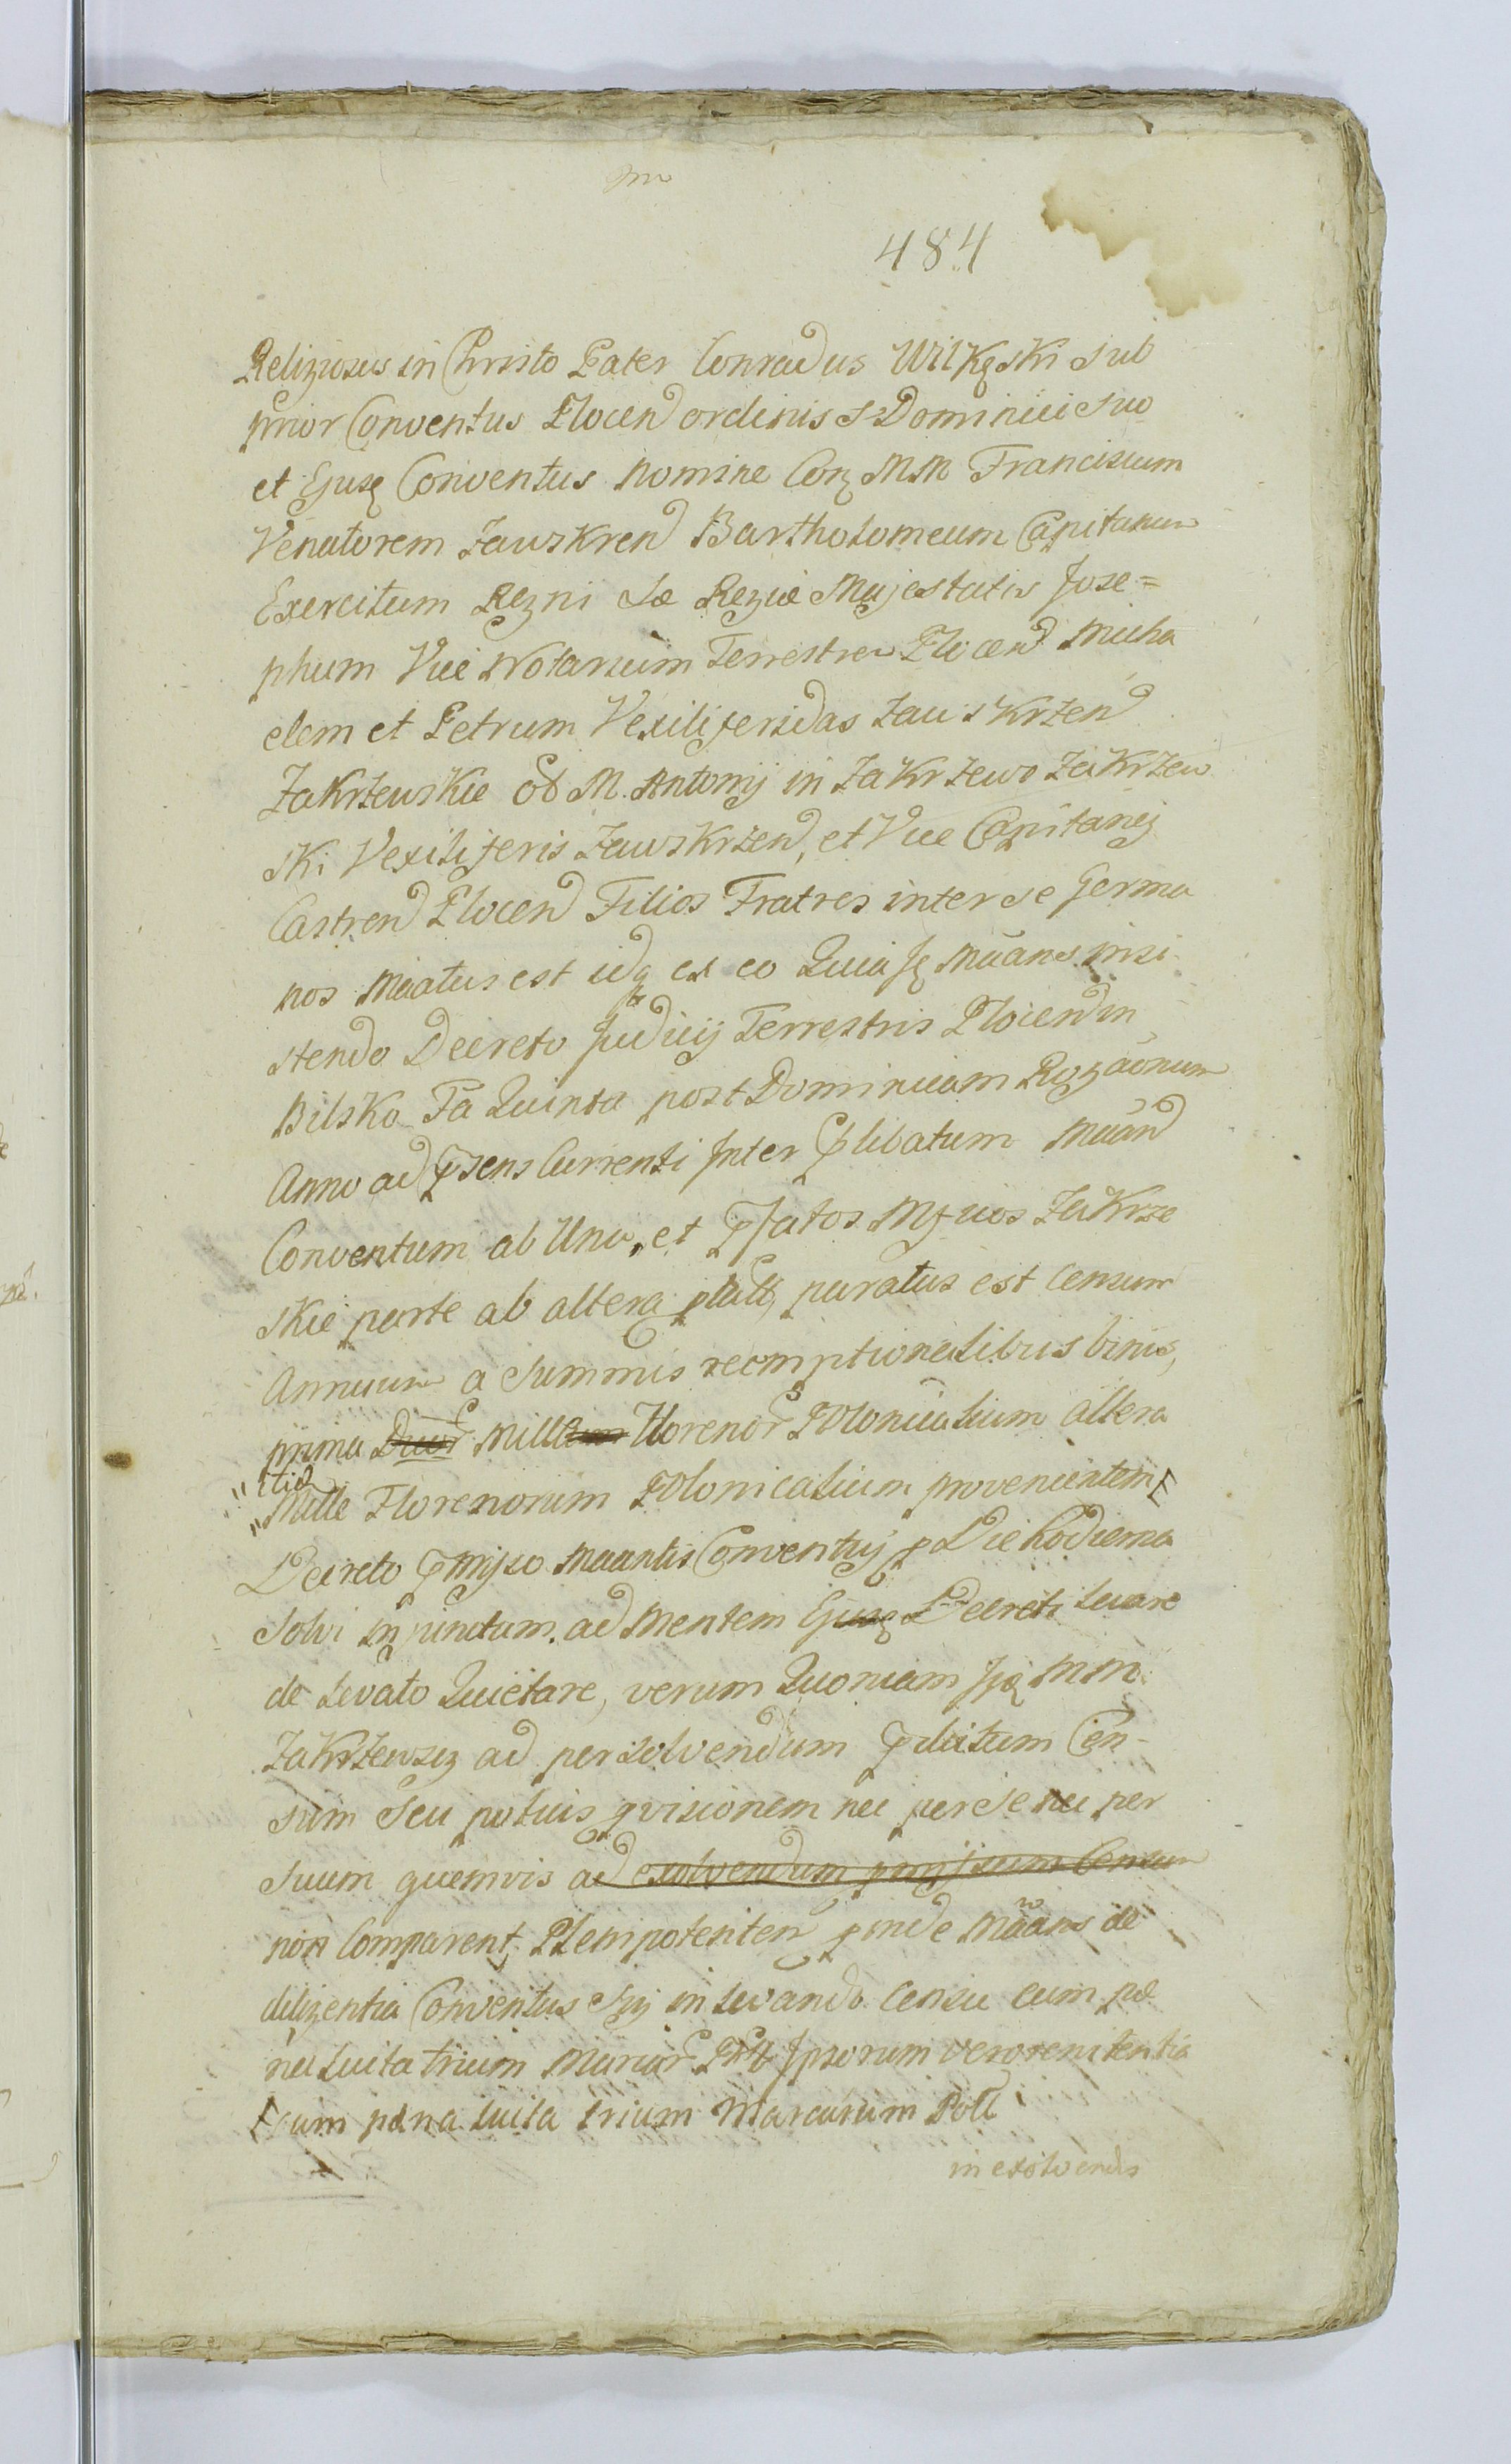 484
Religiosus in Christo Pater Conradus Wilkęski Sub
prior Conventus Plocen ordinis S Dominici suo
et Ejusq Conventus Nomine Con M M Franciscum
Venatorem Zawskren Bartholomeum Capitaneum
Exercituum Regni Sæ Regiæ Majestatis Jose=
phum Vice Notarium Terrestrem Plocen Micha
elem et Petrum Vexiliferidas Zauskrzen
Zakrzewskie olt M. Antonij in Zakrzewo Zakrzew
ski Vexiliferis Zawskrzen, et Vice Capitanej
Castren Plocen Filios Fratres inter se Germa
nos Maatus est idq ex eo Quia Jq Maans insi
stendo Decreto Judicij Terrestris Plocen in
Bilsko Fa Quinta post Dominicam Rogaonum
Anno ad Psens Currenti Inter Plibatum Maan
Conventum ab Una, et Pfatos Mgficos Zakrze
skie parte ab altera plati, paratus est Censum
Annuum a Summis reemptionalibus binis,
prima Duor Millium Florenor Polonicalium altera
itid
Mille Florenorum Polonicalium provenientem
Decreto Pmisso Maantis Conventuj p Die hodierna
Solvi injunctum ad mentem Ejusq Decreti levare
de levato Quietare, verum Quoniam Jjq M M
Zakrzewscy ad persolvendum Plibatum Cen-
sum Seu potius pvisionem nec per se nec per
Suum quemvis ad exolvendum pmissum Censum
non Comparent, Plenipotenten pinde Maans de
diligentia Conventus Sui in levando Censu cum pæ
na luita trium Marcar Pll Ipsorum vero renitentia
cum pæna luita trium Marcarum Poll
in exolvendo